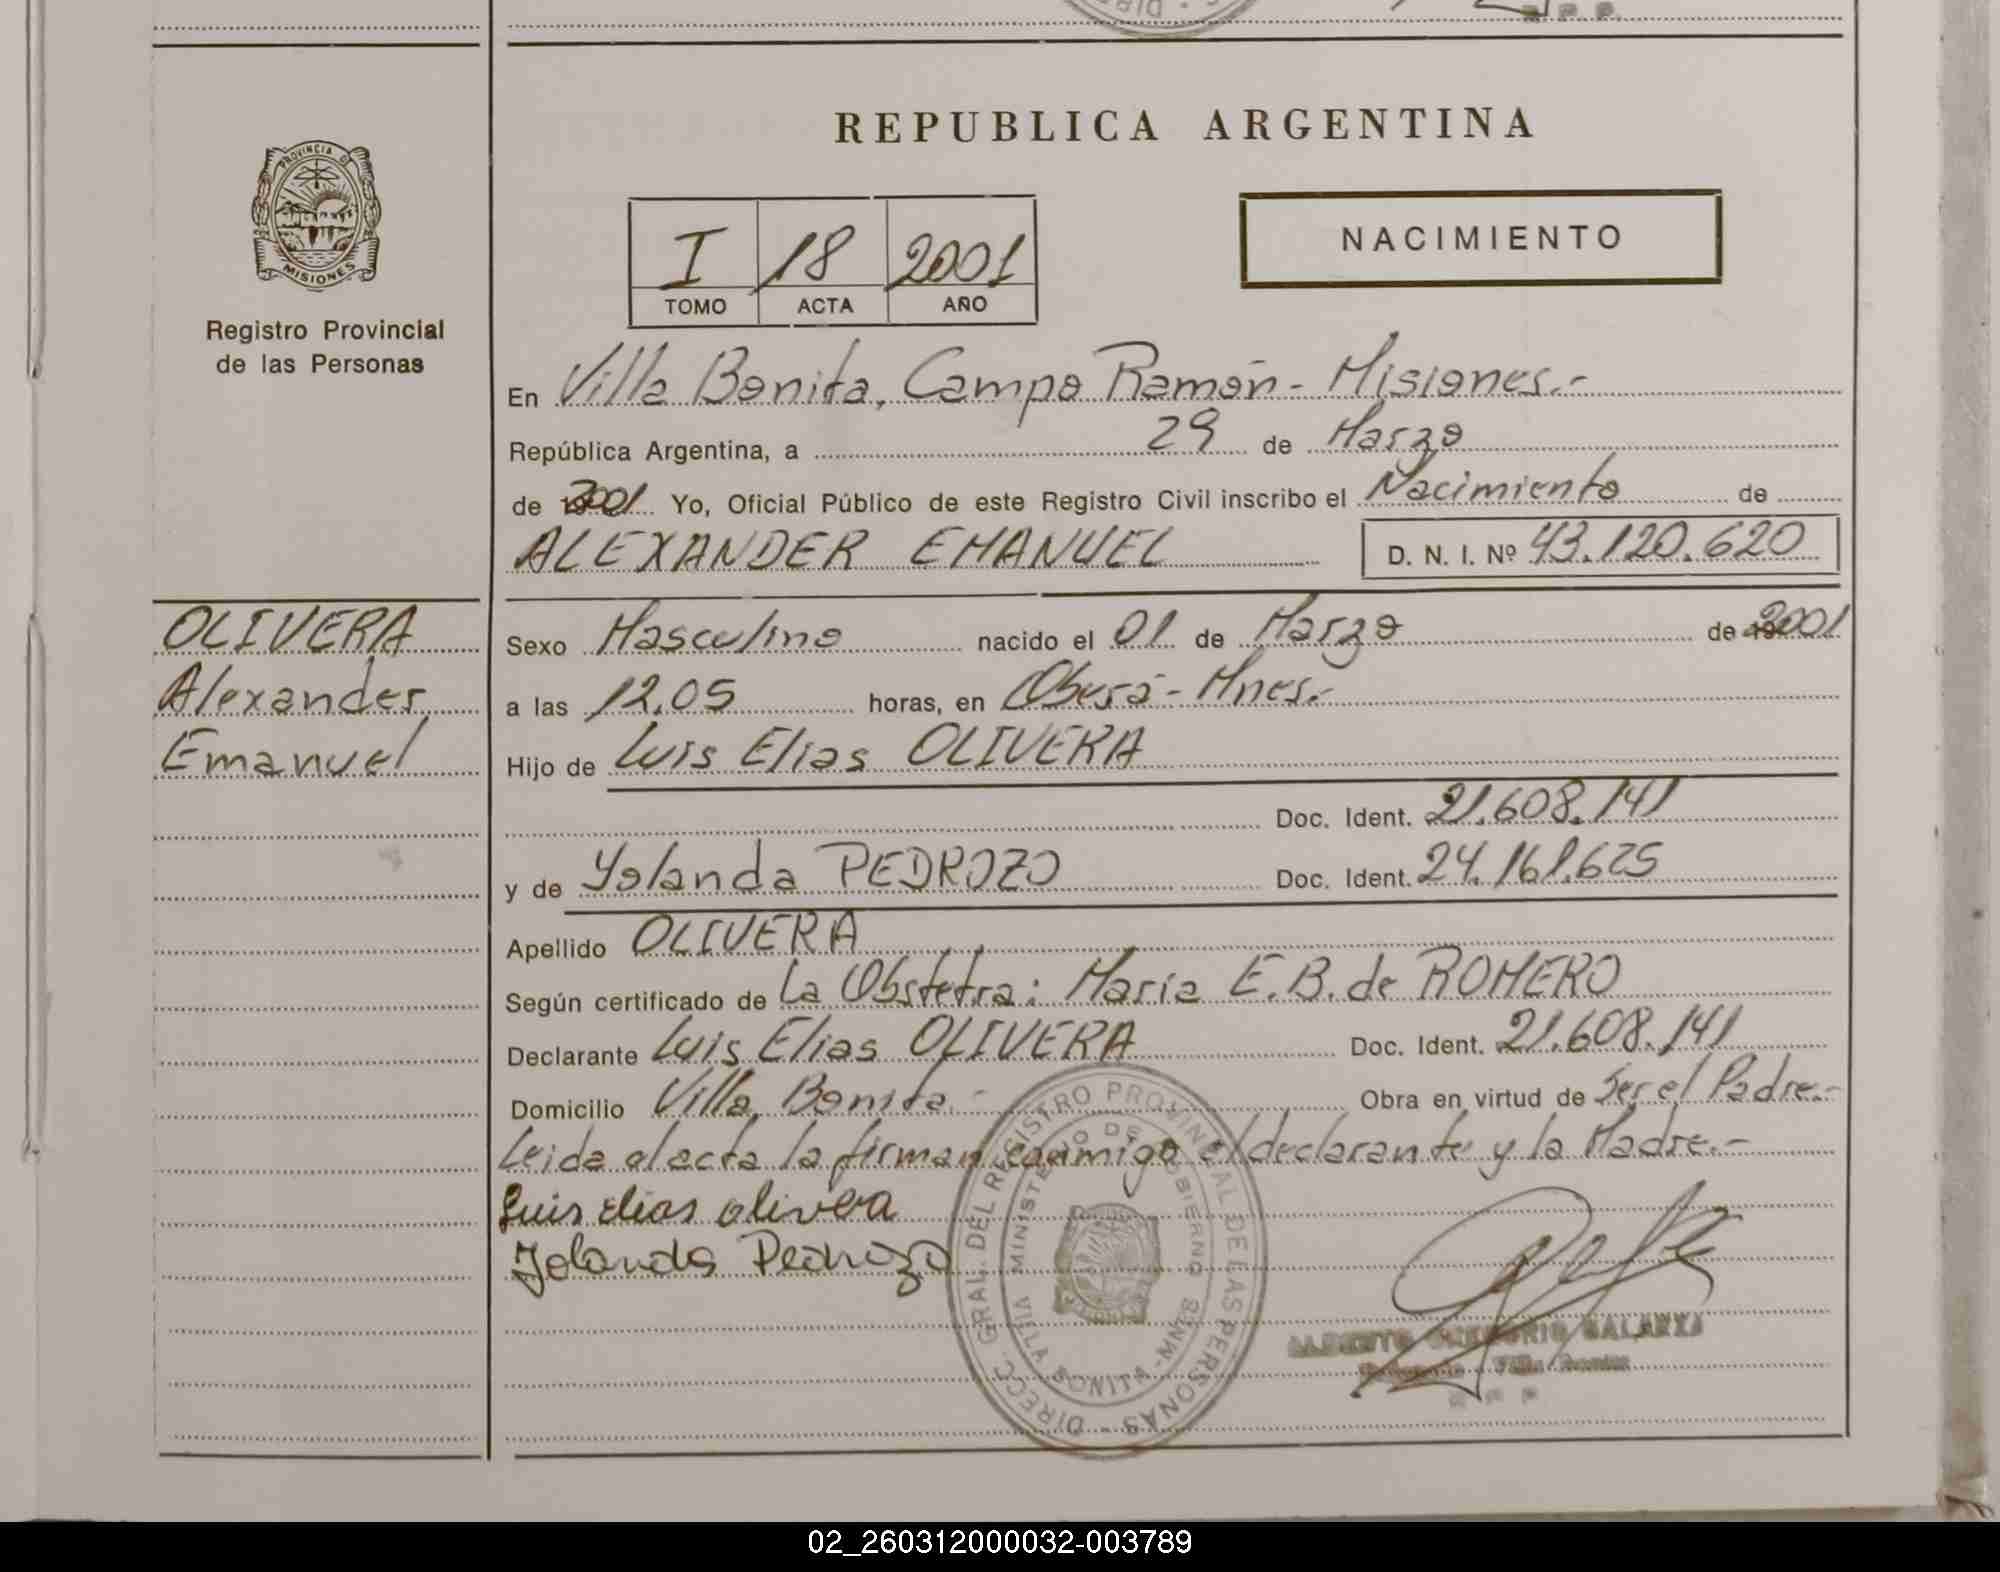 REPUBLICA ARGENTINA
PROVINCIA D
MISIONES
Registro Provincial
de las Personas
I 18 2001
TOMO ACTA AÑO
NACIMIENTO
En Villa Bonita, Campo Ramón - Misiones.-
República Argentina, a 29 de Marzo
de 2001 Yo, Oficial Público de este Registro Civil inscribo el Nacimiento de
ALEXANDER EMANUEL D. N. I. Nº 43.120.620
OLIVERA
Alexander
Emanuel
Sexo Masculino nacido el 01 de Marzo de 2001
a las 12.05 horas, en Oberá - Mnes.-
Hijo de Luis Elias OLIVERA
Doc. Ident. 21.608.141
y de Yolanda PEDROZO Doc. Ident. 24.161.625
Apellido OLIVERA
Según certificado de La Obstetra: Maria E.B. de ROMERO
Declarante Luis Elias OLIVERA Doc. Ident. 21.608.141
Domicilio Villa Bonita.- Obra en virtud de Ser el Padre.-
Leida el acta la firman conmigo el declarante y la Madre.-
Luis elias olivera
Yolanda Pedrozo
DIRECC. GRAL. DEL REGISTRO PROVINCIAL DE LAS PERSONAS
MINISTERIO DE GOBIERNO
VILLA BONITA - MNES
ALBERTO GALARZA
Villa Bonita
02_260312000032-003789